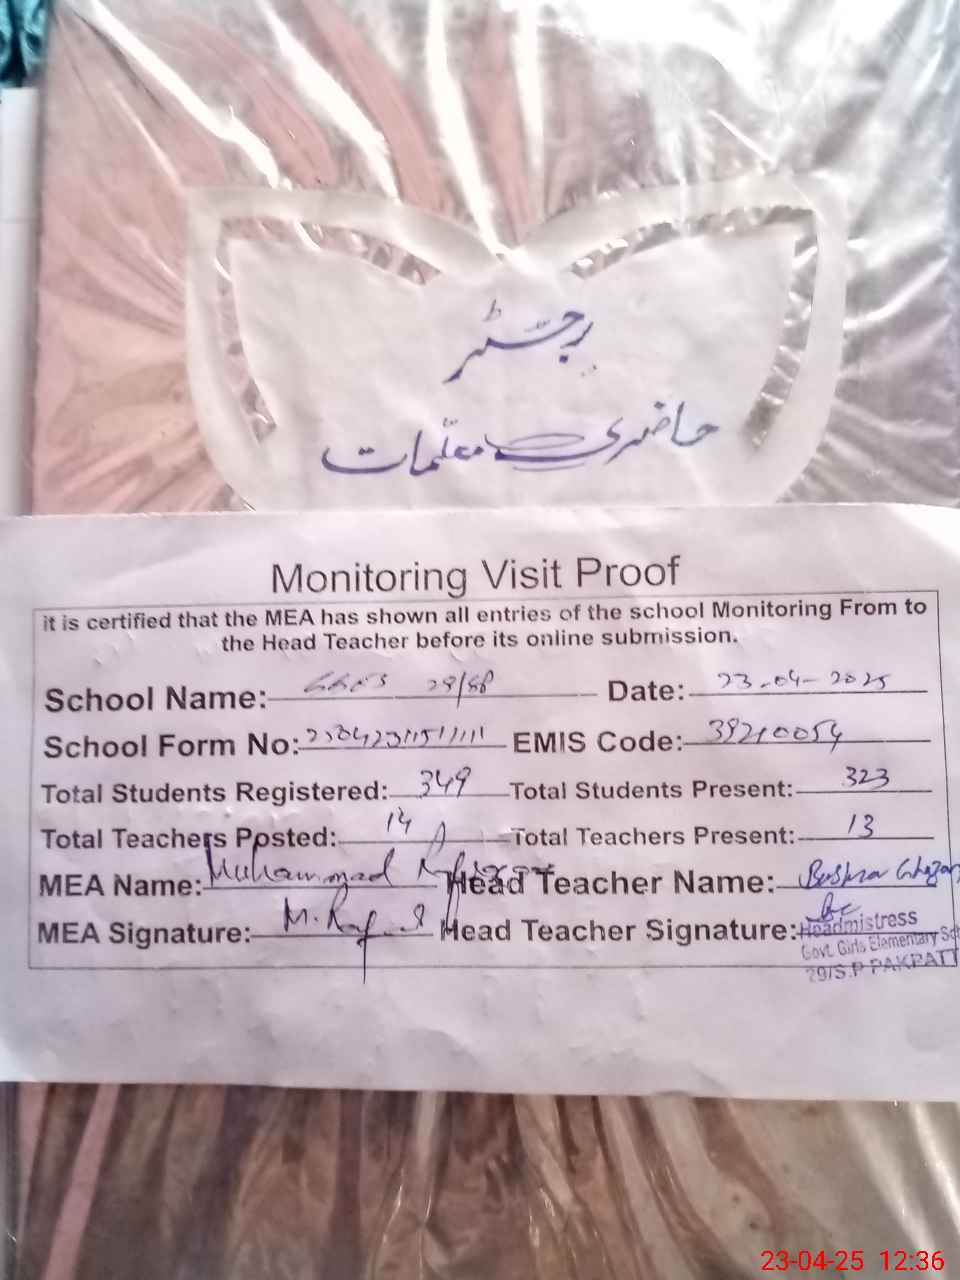 رجسٹر
حاضری معلمات
Monitoring Visit Proof
it is certified that the MEA has shown all entries of the school Monitoring From to
the Head Teacher before its online submission.
School Name: GGES 29/SP Date: 23-04-2025
School Form No: EMIS Code: 39210054
Total Students Registered: 349 Total Students Present: 323
Total Teachers Posted: 14 Total Teachers Present: 13
MEA Name: Muhammad Head Teacher Name: Bushra
MEA Signature: Head Teacher Signature:
Headmistress
Govt. Girls Elementary Sc
29/S.P PAKPATT
23-04-25 12:36